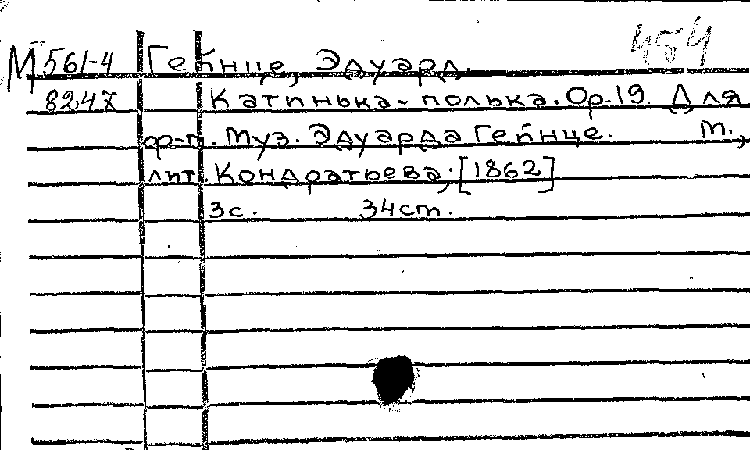 454
М 561-4 Гейнце, Эдуард.
8247 Катинька-полька. Ор.19. Для
ф-п. Муз. Эдуарда Гейнце. М.,
лит. Кондратьева, [1862]
3с. 34ст.